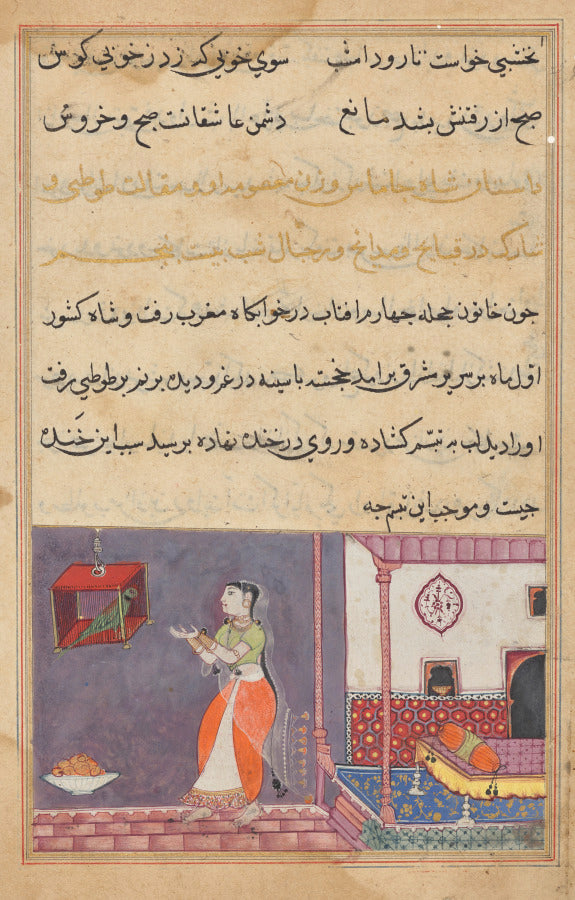 نخشبي خواست تا رود امشب سوي خوبي که زد ز خوبي کوس
صبح از رفتنش بشد مانع دشمن عاشقانست صبح و خروس
داستان شاه و زن معصوم او و مقالت طوطي و
شارک در قبايح و مدايح و رجال شب بيست
جون خاتون حجله جهارم افتاب در خوابکاه مغرب رفت و شاه کشور
اول ماه بر سرير مشرق برامد خجسته با سينه در غم و ديده برنم بر طوطي رفت
او را ديد لب به تبسم کشاده و روي در خنده نهاده برسيد سبب اين خنده
جيست و موجب اين تبسم جه